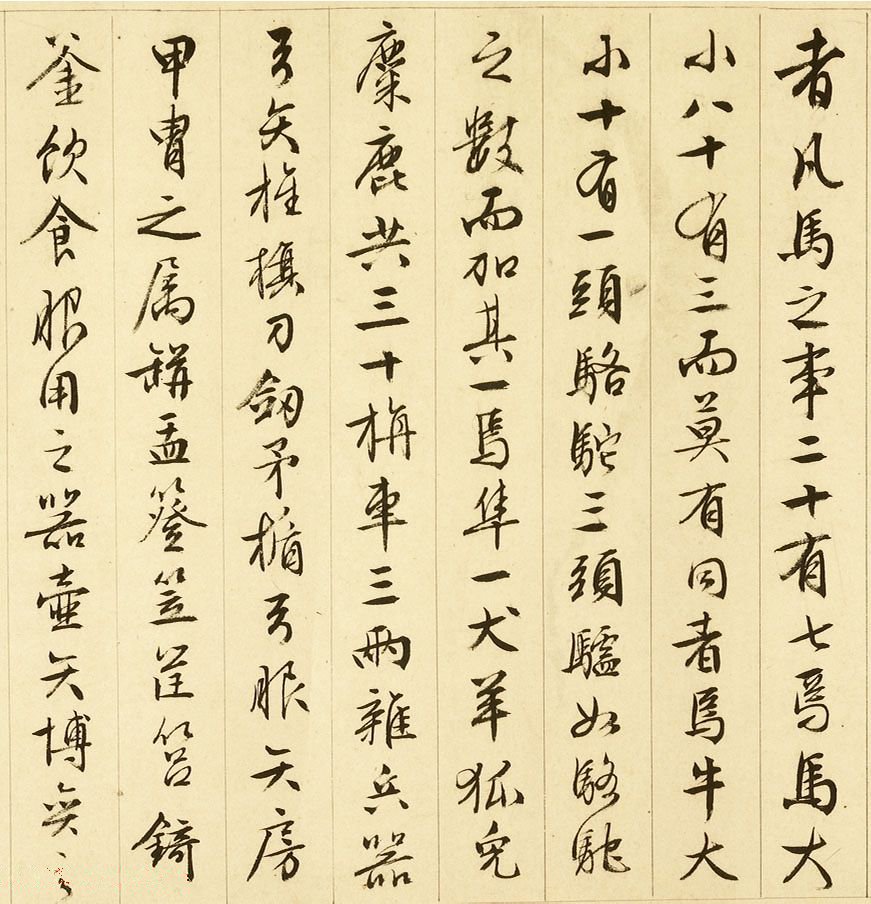 者凡馬之事二十有七焉馬大
小八十有三而莫有同者焉牛大
小十有一頭駱駝三頭驢如駱駝
之數而加其一焉隼一犬羊狐兔
麋鹿共三十旃車三兩雜兵器
弓矢旌旗刀劔矛楯弓服矢房
甲冑之属缾盂簦笠筐筥錡
釜飲食服用之器壷矢博奕之